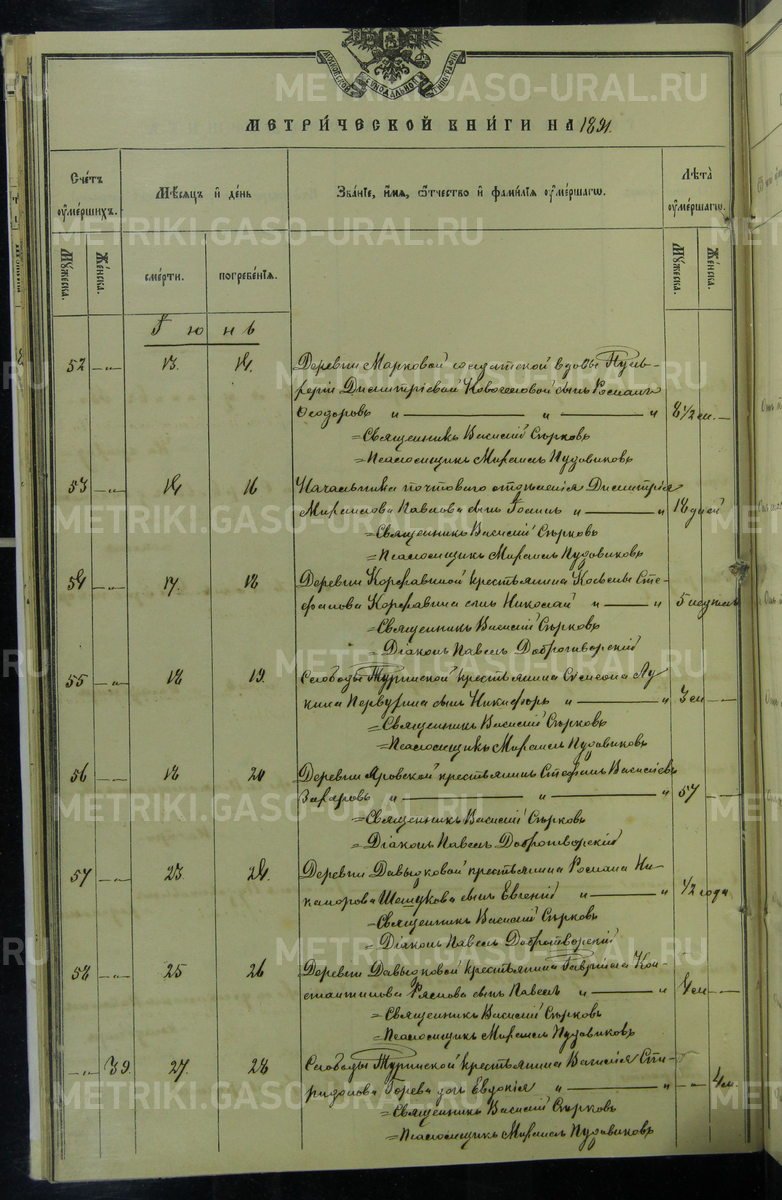 МОСКОВСКОЙ СѴНОДАЛЬНОЙ ТИПОГРАФІИ
МЕТРИ́ЧЕСКОЙ КНИ́ГИ НА 1891.
Сче́тъ ᲂу҆ме́ршихъ.
Мѣ́сяцъ и҆ де́нь
Зва́нїе, и҆́мя, ѻ҆́тчество и҆ фами́лїя ᲂу҆ме́ршагѡ.
Лѣ́та ᲂу҆ме́ршагѡ.
Мꙋ́жеска. Же́нска. сме́рти. погребе́нїя. Мꙋ́жеска. Же́нска.
Іюнь
52 —"— 13. 14. Деревни Марковой солдатской вдовы Пуль-
херіи Димитріевой Новоселовой сынъ Романъ
Ѳеодоровъ " — " — " 8 1/2 м. —
=Священникъ Василій Сѣрковъ
=Псаломщикъ Мираилъ Пудовиковъ
53 —"— 14 16 Начальника почтоваго отдѣленія Димитрія
Павлова сынъ " — " 18 дней
=Священникъ Василій Сѣрковъ
=Псаломщикъ Пудовиковъ
54 —"— 17. 18 Деревни Коржавиной крестьянина Косьмы Сте-
фанова Коржавина сынъ Николай " — " 5 недѣль
=Священникъ Василій Сѣрковъ
=Діаконъ Павелъ Добротворскій
55 —"— 18 19. Слободы Туринской крестьянина Симеона Лу-
кина Первухина сынъ Никифоръ " — " 3 м —
=Священникъ Василій Сѣрковъ
=Псаломщикъ Пудовиковъ
56 —"— 18 20 Деревни Яровской крестьянинъ Стефанъ Васильевъ
Захаровъ " — " — " 57 —
=Священникъ Василій Сѣрковъ
=Діаконъ Павелъ Добротворскій
57 —"— 23. 24. Деревни Давыдковой крестьянина Романа Ни-
канорова Шешукова сынъ Евгеній " — " 1/2 года
=Священникъ Василій Сѣрковъ
=Діаконъ Павелъ Добротворскій
58 —"— 25 26 Деревни Давыдковой крестьянина Гавріила Кон-
стантинова сынъ Павелъ " — " 4 м —
=Священникъ Василій Сѣрковъ
=Псаломщикъ Пудовиковъ
—"— 39. 27. 28 Слободы Туринской крестьянина Василія Спи-
ридонова Горева дочь Евдокія " — " — 4 м.
=Священникъ Василій Сѣрковъ
=Псаломщикъ Пудовиковъ
METRIKI.GASO-URAL.RU